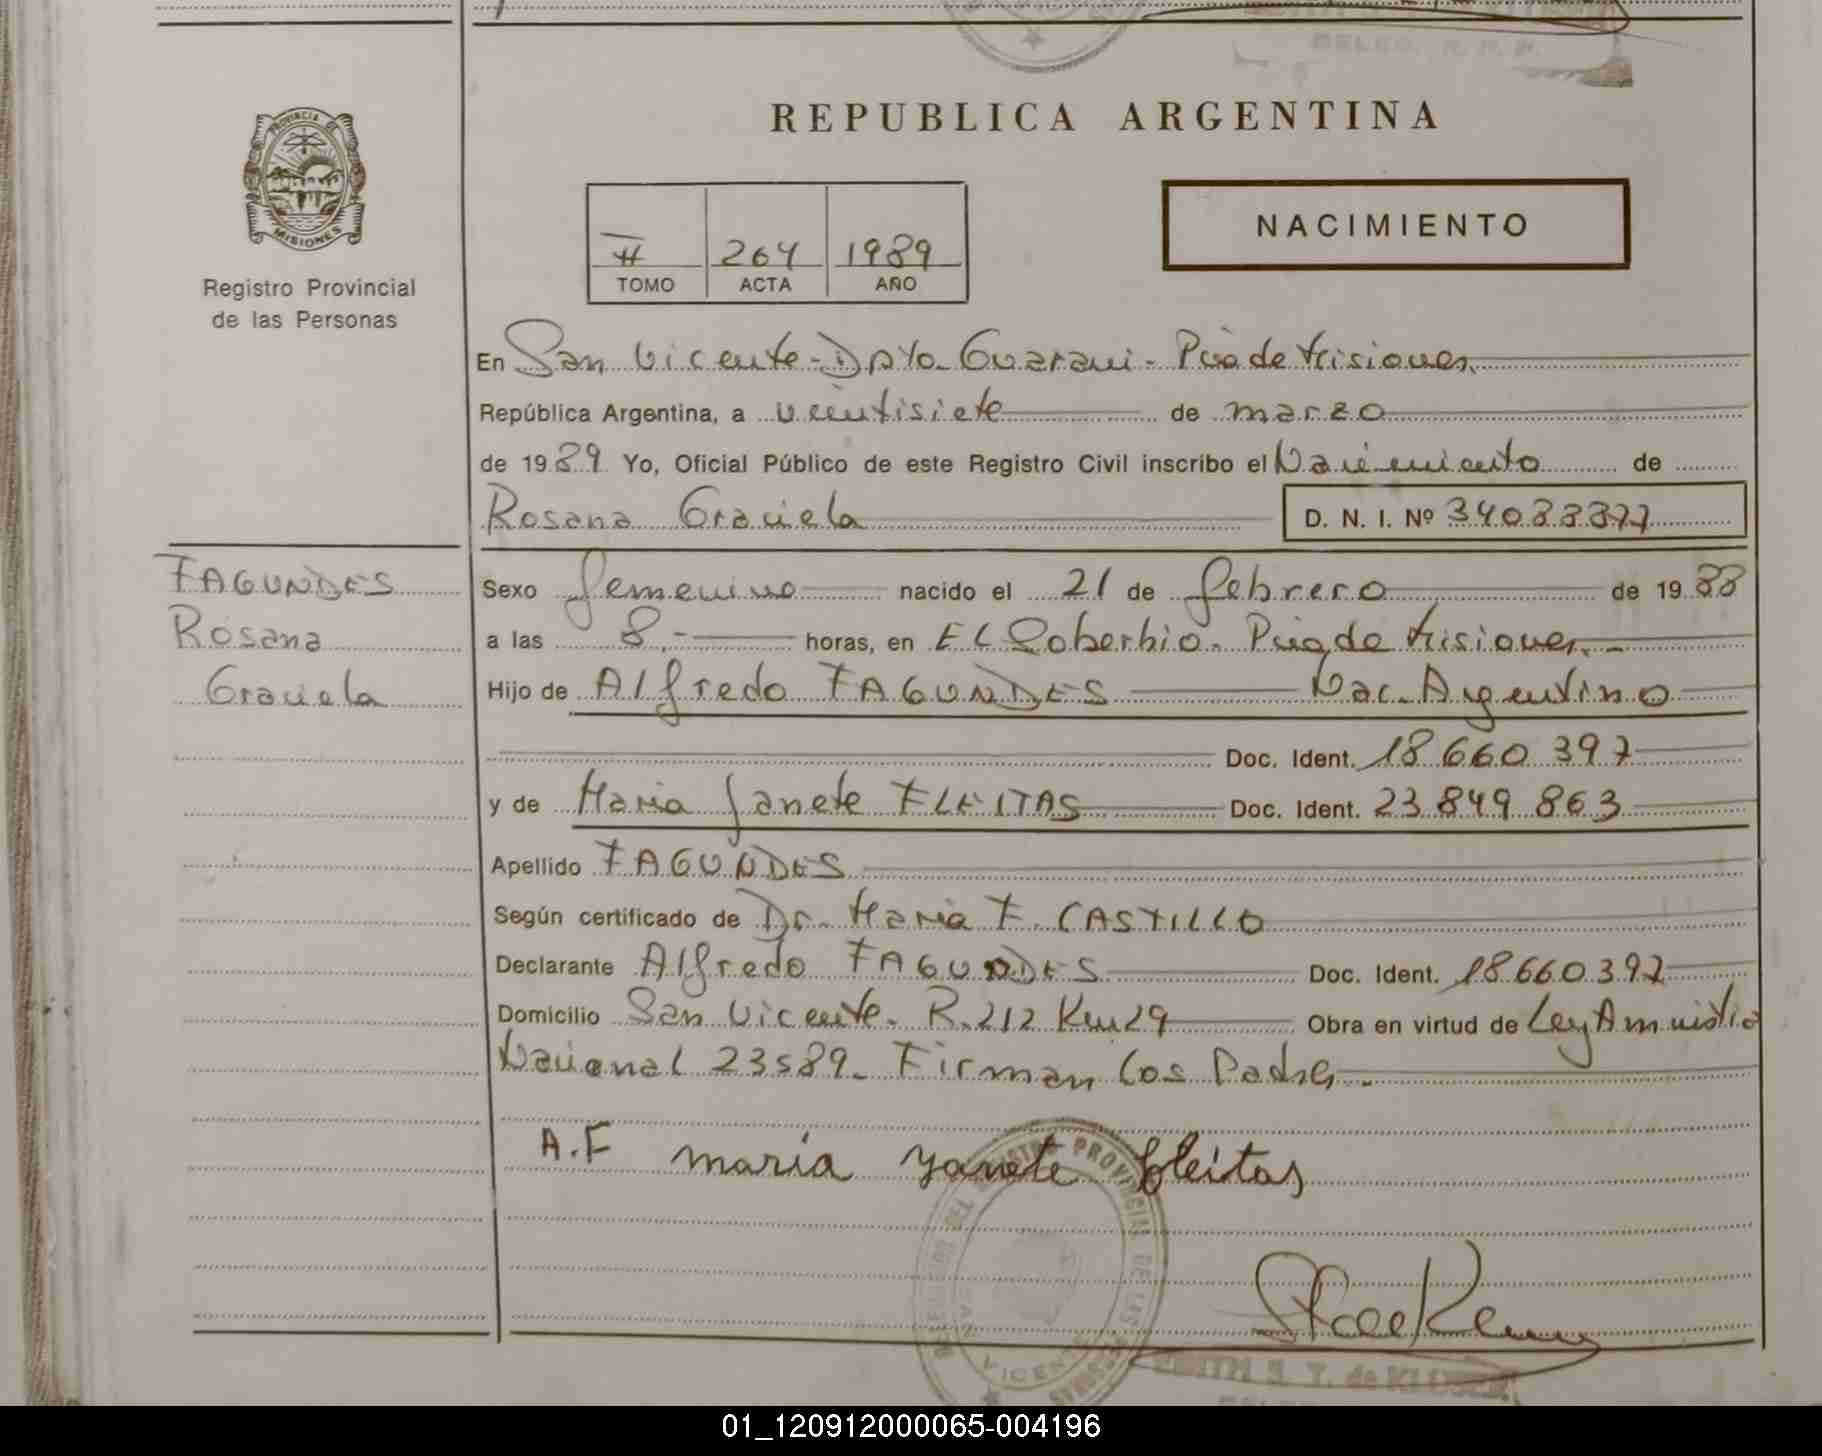 DELEG. R. P. P.
PROVINCIA DE
MISIONES
Registro Provincial
de las Personas
REPUBLICA ARGENTINA
NACIMIENTO
264 1989
TOMO ACTA AÑO
En San Vicente - Dpto. Guarani - Pcia de Misiones
República Argentina, a veintisiete de marzo
de 1989 Yo, Oficial Público de este Registro Civil inscribo el Nacimiento de
Rosana Graciela D. N. I. Nº 34033377
FAGUNDES
Rosana
Graciela
Sexo femenino nacido el 21 de febrero de 1988
a las 8.- horas, en EL Soberbio. Pcia de Misiones.-
Hijo de Alfredo FAGUNDES Nac. Argentino
Doc. Ident. 18.660.397
y de Maria Janete FLEITAS Doc. Ident. 23.849.863
Apellido FAGUNDES
Según certificado de Dr. Maria F. CASTILLO
Declarante Alfredo FAGUNDES Doc. Ident. 18.660.397
Domicilio San Vicente. R. 212 Km 29 Obra en virtud de Ley Amnistia
Nacional 23589. Firman los Padres.
A.F maría yanete fleitas
REGISTRO PROVINCIAL DE LAS PERSONAS
VICENTE
01_120912000065-004196